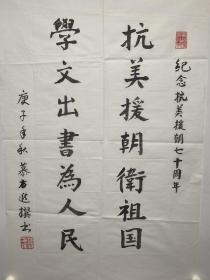 纪念抗美援朝七十周年
抗美援朝衛祖国
學文出書為人民
庚子年秋慕右迟撰书